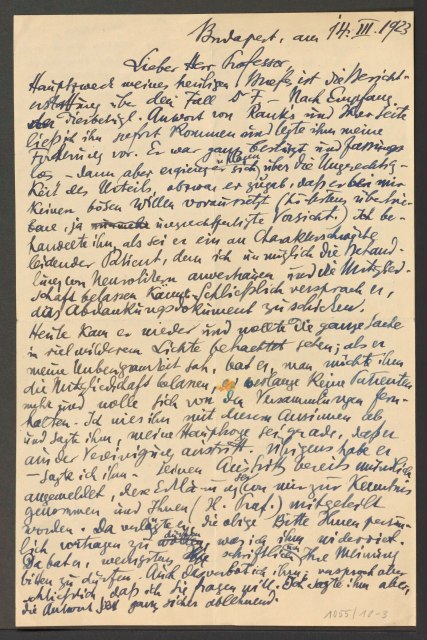 Budapest, am 14. III. 1923
Lieber Herr Professor.
Hauptzweck meines heutigen Briefes ist die Bericht-
erstattung über den Fall Dr F. – Nach Empfang
der diesbezügl. Antwort von Ranks und Ihrer Seite
ließ ich ihn sofort kommen und legte ihm meine
Forderung vor. Er war ganz bestürzt und fassungs-
los – dann aber erging er sich in Klagen über die Ungerechtig-
keit des Urteils, obzwar er zugab, daß er bei mir
keinen bösen Willen voraussetzt (höchstens übertrie-
bene, ja ungerechtfertigte Vorsicht). Ich be-
handelte ihn, als sei er ein an Charakterschwäche
leidender Patient, dem ich unmöglich die Behand-
lung von Neurotikern anvertrauen und die Mitglied-
schaft belassen kann. Schließlich versprach er,
das Abdankungsdokument zu schicken.
Heute kam er wieder und wollte die ganze Sache
in viel milderem Lichte betrachtet sehen; als er
meine Unbeugsamkeit sah, bat er, man möchte ihm
die Mitgliedschaft belassen, er verlange keine Patienten
mehr und wolle sich von den Versammlungen fern-
halten. Ich wies ihn mit diesem Ansinnen ab
und sagte ihm, meine Hauptsorge sei gerade, daß er
aus der Vereinigung austritt. Übrigens habe er
– sagte ich ihm – seinen Austritt bereits mündlich
angemeldet, diese Erklärung sei von mir zur Kenntnis
genommen und Ihnen (H. Prof.) mitgeteilt
worden. Da verlangte er, die obige Bitte Ihnen persön-
lich vortragen zu dürfen, was ich ihm widerriet.
Da bat er, wenigstens schriftlich um Ihre Meinung
bitten zu dürfen. Auch das verbot ich ihm, versprach aber
schließlich, daß ich Sie fragen will. Ich sagte ihm aber,
die Antwort sei ganz sicher ablehnend.
1055/18-3